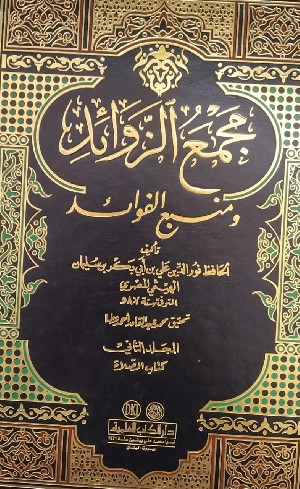 مجمع الزوائد
ومنبع الفوائد
تأليف
الحافظ نور الدين علي بن أبي بكر بن سليمان
الهيثمي المصري
المتوفى سنة ٨٠٧ هـ
تحقيق محمد عبد القادر أحمد عطا
المجلد الثاني
كتاب الصلاة
DKI
دار الكتب العلمية
بيروت - لبنان